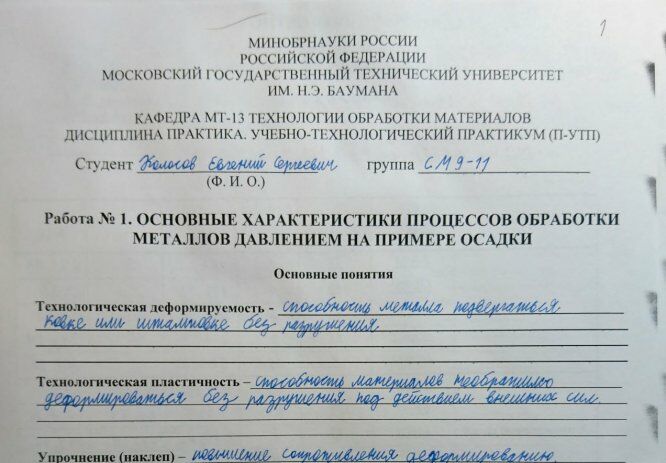 1
МИНОБРНАУКИ РОССИИ
РОССИЙСКОЙ ФЕДЕРАЦИИ
МОСКОВСКИЙ ГОСУДАРСТВЕННЫЙ ТЕХНИЧЕСКИЙ УНИВЕРСИТЕТ
ИМ. Н.Э. БАУМАНА
КАФЕДРА МТ-13 ТЕХНОЛОГИИ ОБРАБОТКИ МАТЕРИАЛОВ
ДИСЦИПЛИНА ПРАКТИКА. УЧЕБНО-ТЕХНОЛОГИЧЕСКИЙ ПРАКТИКУМ (П-УТП)
Студент Колосов Евгений Сергеевич группа СМ9-11
(Ф. И. О.)
Работа № 1. ОСНОВНЫЕ ХАРАКТЕРИСТИКИ ПРОЦЕССОВ ОБРАБОТКИ
МЕТАЛЛОВ ДАВЛЕНИЕМ НА ПРИМЕРЕ ОСАДКИ
Основные понятия
Технологическая деформируемость - способность металла подвергаться
ковке или штамповке без разрушения
Технологическая пластичность – способность материалов необратимо
деформироваться без разрушения под действием внешних сил.
Упрочнение (наклеп) – повышение сопротивления деформированию